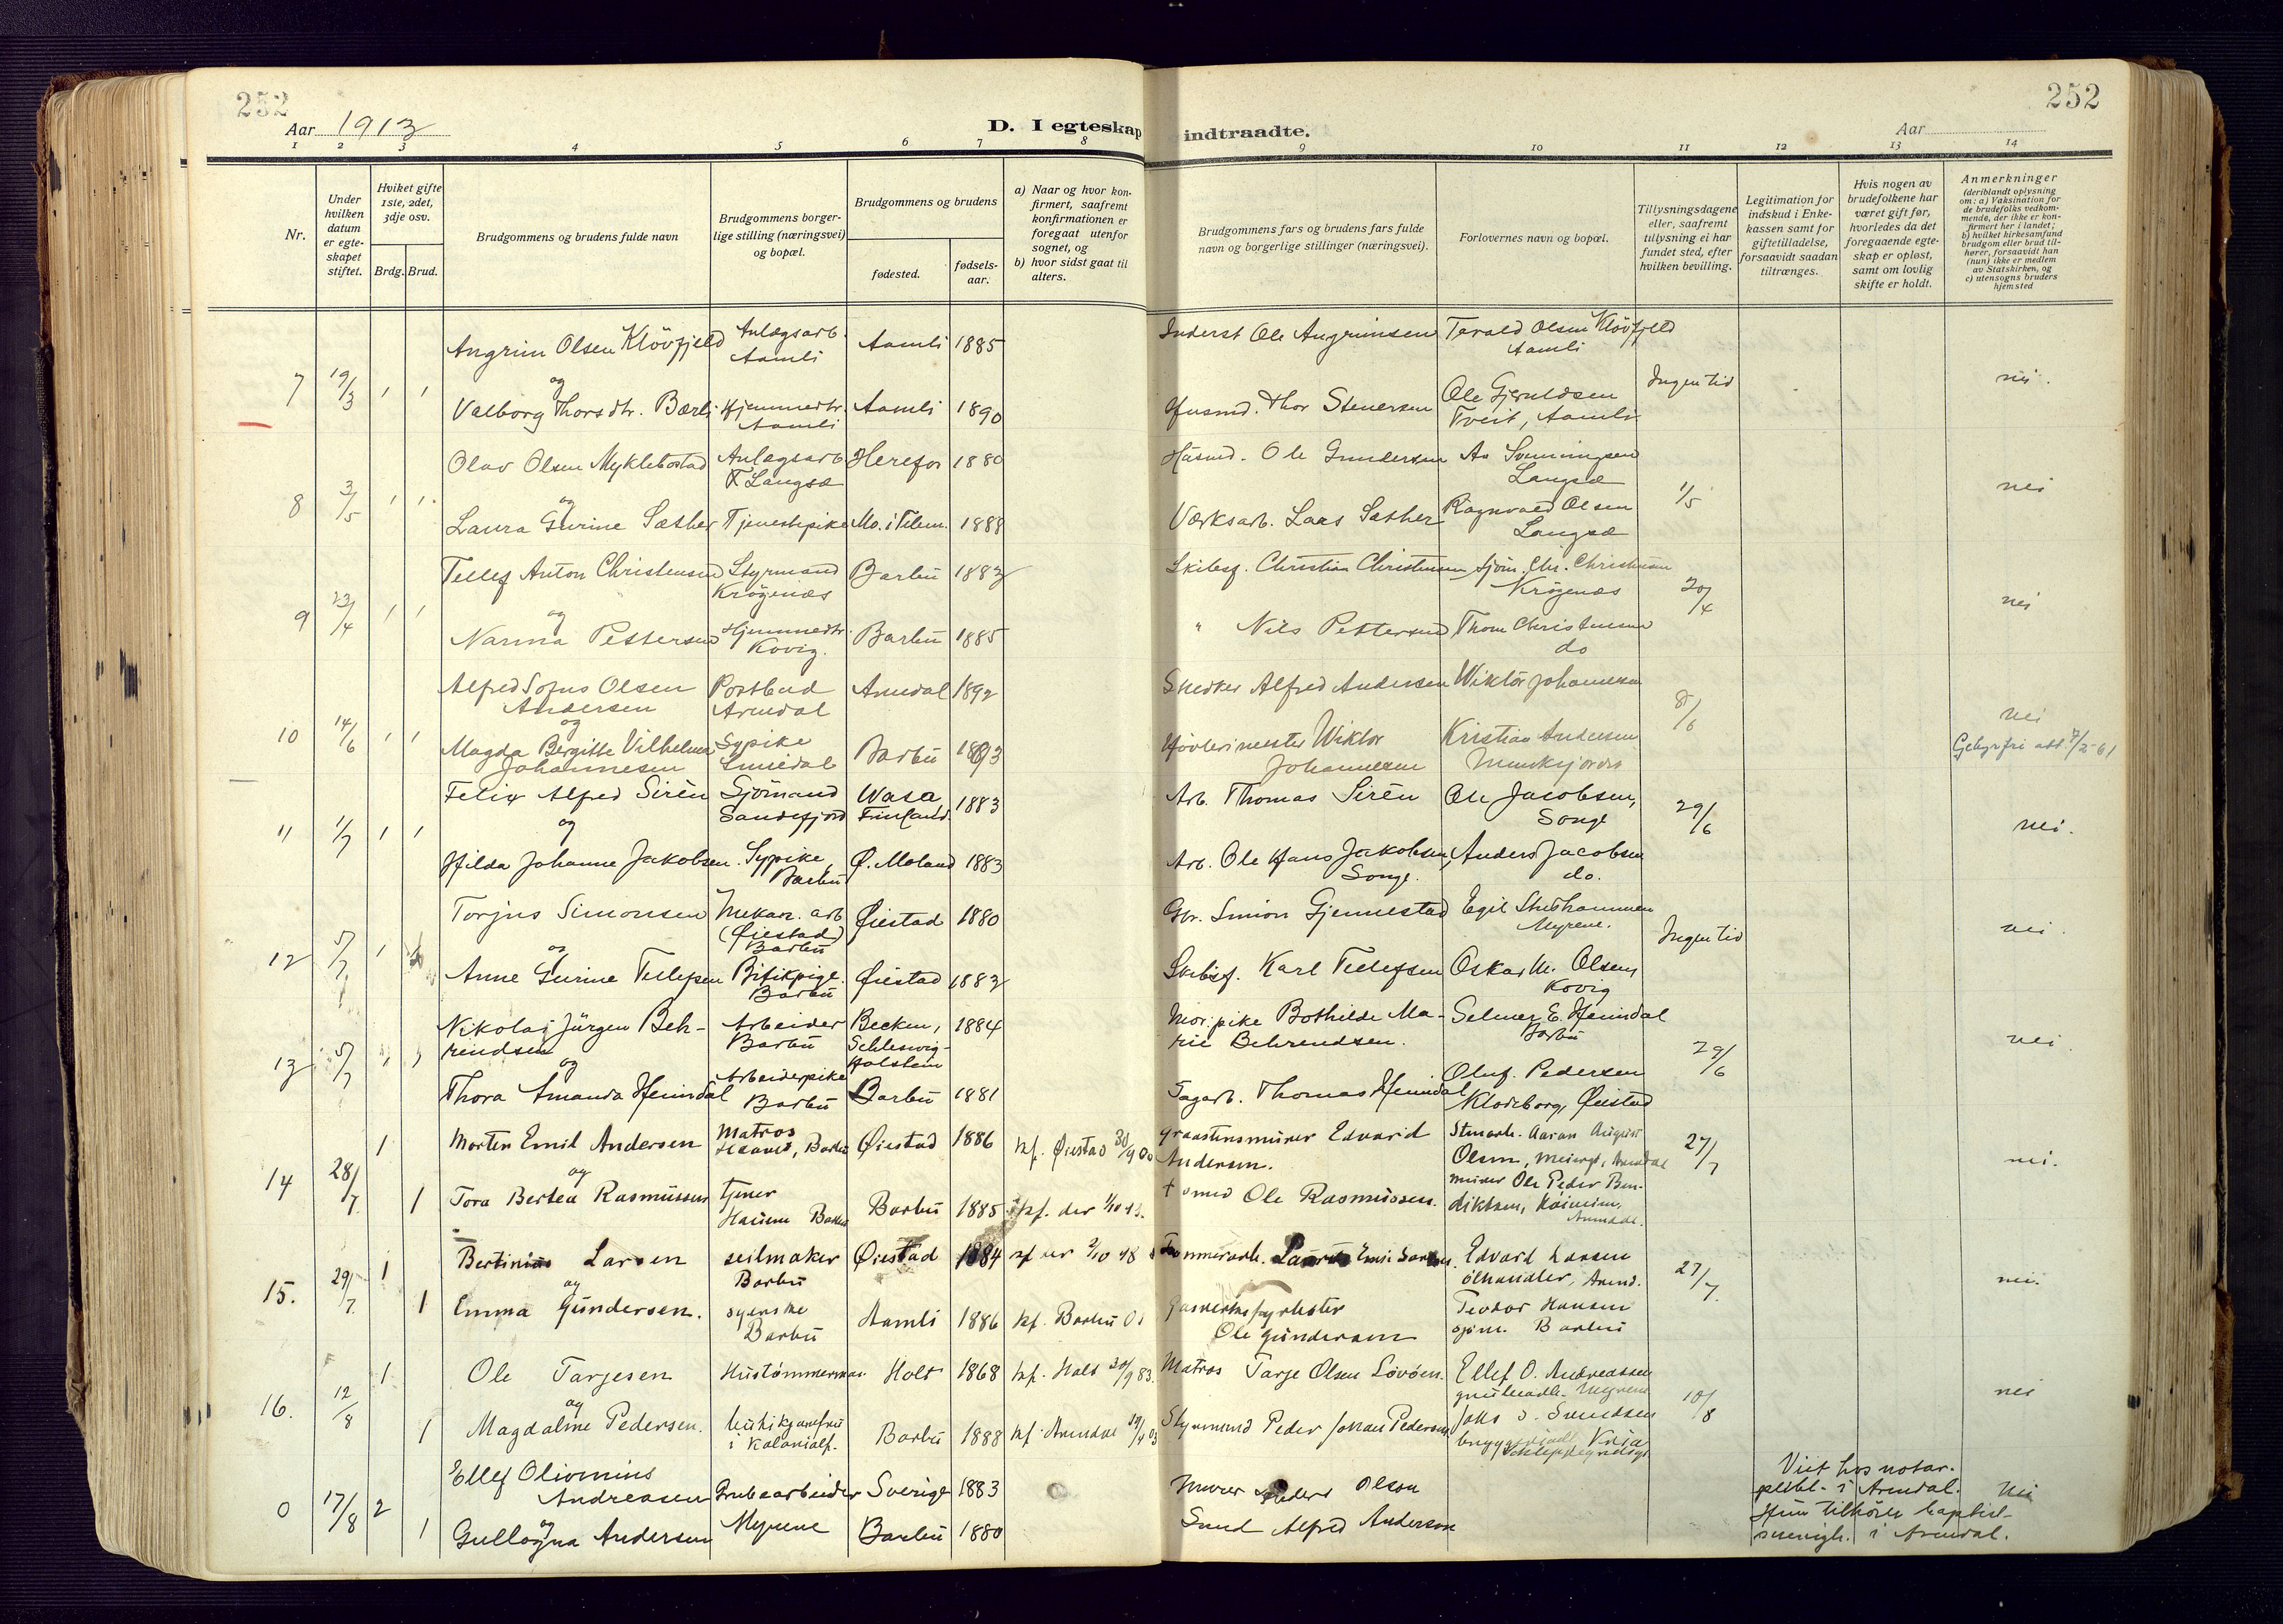 252
252
Aar 1913
D. I egteskap indtraadte.
Aar
1 2 3 4 5 6 7 8 9 10 11 12 13 14
Nr.
Under hvilken datum er egteskapet stiftet.
Hviket gifte 1ste, 2det, 3dje osv.
Brdg. Brud.
Brudgommens og brudens fulde navn
Brudgommens borgerlige stilling (næringsvei) og bopæl.
Brudgommens og brudens
fødested.
fødselsaar.
a) Naar og hvor konfirmert, saafremt konfirmationen er foregaat utenfor sognet, og
b) hvor sidst gaat til alters.
Brudgommens fars og brudens fars fulde navn og borgerlige stillinger (næringsvei).
Forlovernes navn og bopæl.
Tillysningsdagene eller, saafremt tillysning ei har fundet sted, efter hvilken bevilling.
Legitimation for indskud i Enkekassen samt for giftetilladelse, forsaavidt saadan tiltrænges.
Hvis nogen av brudefolkene har været gift før, hvorledes da det foregaaende egteskap er opløst, samt om lovlig skifte er holdt.
Anmerkninger
(deriblandt oplysning om: a) Vaksination for de brudefolks vedkommende, der ikke er konfirmert her i landet; b) hvilket kirkesamfund brudgom eller brud tilhører, forsaavidt han (hun) ikke er medlem av Statskirken, og c) utensogns bruders hjemsted
Angrim Olsen Klövfjeld Anlægsarb. Aamli Aamli 1885 Inderst Ole Angrimsen Tarald Olsen Klövfjeld Aamli
7 19/3 1 1 og Ingen tid nei.
Valborg Thorsdtr. Bærli Hjemmedtr. Aamli Aamli 1890 Husmd. Thor Stenersen Ole Gjeruldsen Tveit, Aamli
Olav Olsen Myklebostad Anlægsarb. Langsæ Herefos 1880 Husmd. Ole Gundersen As Svenningsen Langsæ
8 3/5 1 1 og 1/5 nei
Laura Gurine Sæther Tjenestepike Mo. i Telem. 1888 Værksarb. Lars Sæther Ragnvald Olsen Langsæ
Tellef Anton Christensen Styrmand Krögenæs Barbu 1883 Skibsf. Christian Christensen Sjöm. Chr. Christensen Krögenæs
9 23/4 1 1 og 20/4 nei
Nanna Pettersen Hjemmedtr. Kovig. Barbu 1885 " Nils Pettersen Thom Christensen do
Alfred Sofus Olsen Andersen Postbud Arendal Arendal 1892 Snedker Alfred Andersen Wiktor Johannesen
10 14/6 1 1 og 8/6 nei
Magda Bergitte Vilhelmine Johannesen Sypike Barbu 1893 Hövlerimester Wiktor Johannesen Kristian Andersen 7/2-61
Felix Alfred Sirèn Sjömand Sandefjord Wasa, Finland. 1883 Arb. Thomas Sirèn Ole Jacobsen, Songe
11 1/7 1 1 og 29/6 nei.
Hilda Johanne Jakobsen. Sypike, Barbu Ø. Moland 1883 Arb. Ole Hans Jakobsen, Songe. Anders Jacobsen do.
Torjus Simonsen Mekan. arb (Øiestad) Barbu Øiestad 1880 Gbr. Simon Gjennestad Egil Myrene.
12 5/7 1 og Ingen tid nei.
Anne Gurine Tellefsen Barbu Øiestad 1883 Skibsf. Karl Tellefsen Oskar M. Olsen, Kovig
Nikolaj Jürgen Behrendsen Arbeider Barbu Becken, Schleswig-Holstein 1884 Mor: pike Bothilde Marie Behrendsen. Selmer E. Heimdal Barbu
13 5/7 1 1 og 29/6 nei.
Thora Amanda Heimdal Arbeiderpike Barbu Barbu 1881 Sagarb. Thomas Heimdal Oluf. Pedersen Klodeborg, Øiestad
Morten Emil Andersen Matros Barbu Øiestad 1886 kf. Øiestad 30/9 00 Graastensmurer Edvard Andersen. Stenarb. Aaron August Olsen, Arendal
14 28/7 1 1 og 27/7 nei.
Tora Bertea Rasmussen tjener Barbu Barbu 1885 kf. der 1/10 Ole Rasmussen. murer Ole Peder Bendiktsen, Arendal.
Bertinius Larsen seilmaker Barbu Øiestad 1884 Tømmerarb. Edvard Larsen ølhandler, Arend.
15. 29/7 1 1 og 27/7. nei.
Emma Gundersen. syerske Barbu Aamli 1886 kf. Barbu 01 Gasverksfyrbøter Ole Gundersen Teodor Hansen sjøm. Barbu
Ole Tarjesen Hustømmerman Holt 1868 kf. Holt 30/9 83. Matros Tarje Olsen Løvåsen. Ellef O. Andreassen Myrene
16. 12/8 1 1 og 10/8 nei
Magdaline Pedersen. butikjomfru i Kolonialf. Barbu 1888 kf. Arendal Styrmand Peder Johan Pedersen Svendsen
Ellef Olivinius Andreasen Grubearbeider Sverige 1883 Murer Anders Olson Viet hos notar. publ. i Arendal. Nei
0 17/8 2 1 og Myrene
Gullagna Andersen Barbu 1880 Smed Alfred Andersen Hun tilhører baptistmenigh. i Arendal.